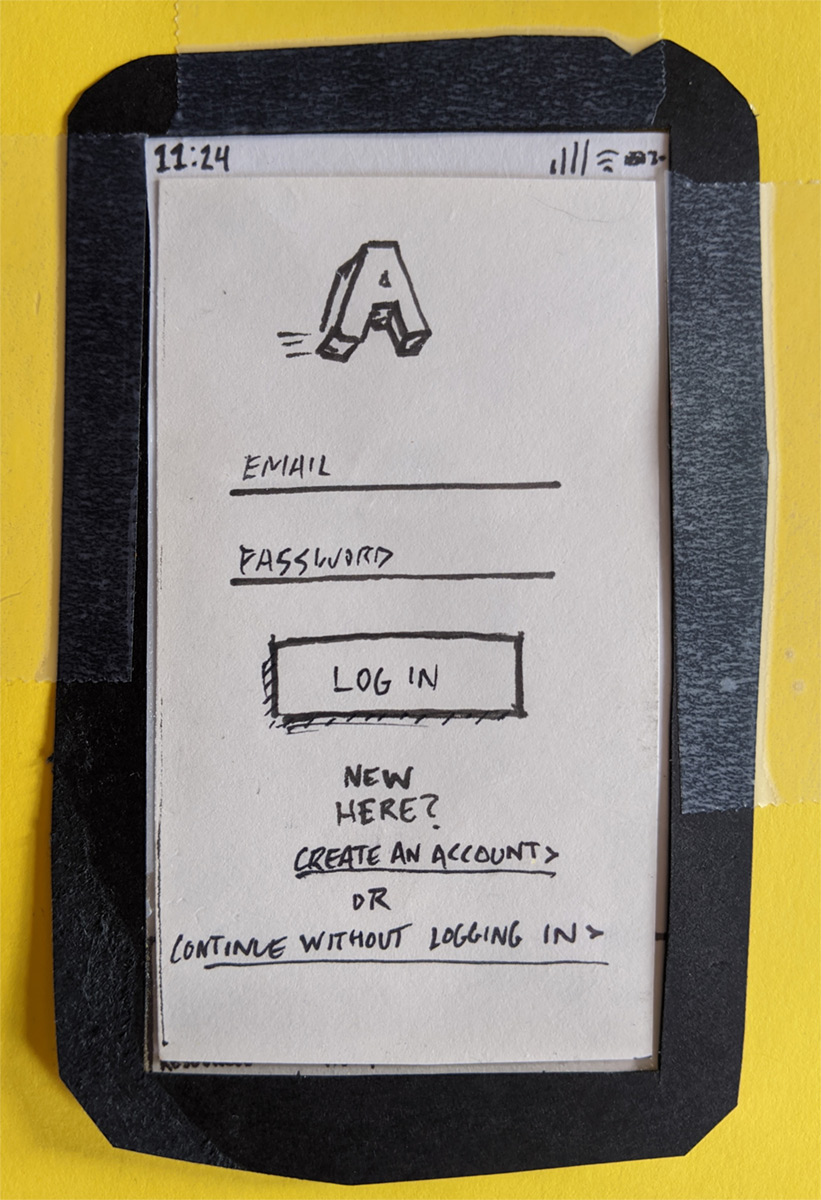 11:24
A
EMAIL
PASSWORD
LOG IN
NEW
HERE?
CREATE AN ACCOUNT>
OR
CONTINUE WITHOUT LOGGING IN>